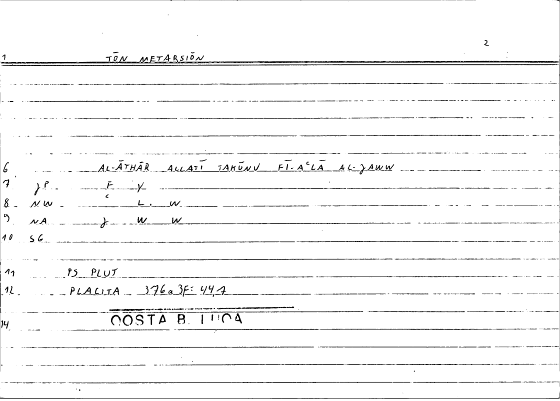 2
1 TŌN METARSIŌN
6 AL-ĀTHĀR ALLATĪ TAKŪNU FĪ-AʿLĀ AL-JAWW
7 JP F Y
8 NW ʿ L W
9 NA J W W
10 SG
11 PS PLUT
12 PLACITA 376a3F: 44,7
COSTA B. LUCA
14